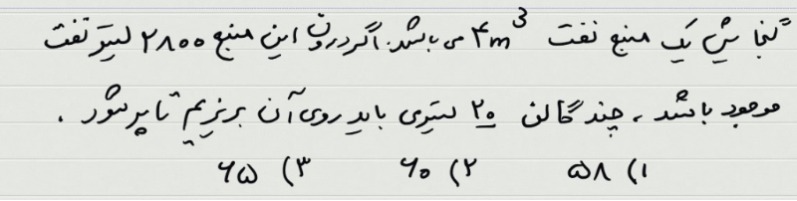 گنجایش یک منبع نفت ۴m³ می باشد. اگر درون این منبع ۲۸۰۰ لیتر نفت
موجود باشد، چند گالن ۲۰ لیتری باید روی آن بریزیم تا پر شود.
۱) ۵۸ ۲) ۶۰ ۳) ۶۵